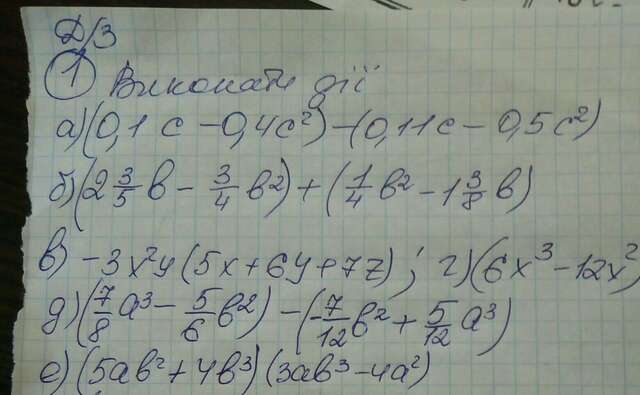 Д/З
① Виконати дії
а)(0,1c - 0,4c²) - (0,11c - 0,5c²)
б)(2 3/5 b - 3/4 b²) + (1/4 b² - 1 3/8 b)
в) -3x²y (5x + 6y + 7z); г)(6x³ - 12x²
д)(7/8 a³ - 5/6 b²) - (-7/12 b² + 5/12 a³)
е)(5ab² + 4b³)(3ab³ - 4a²)